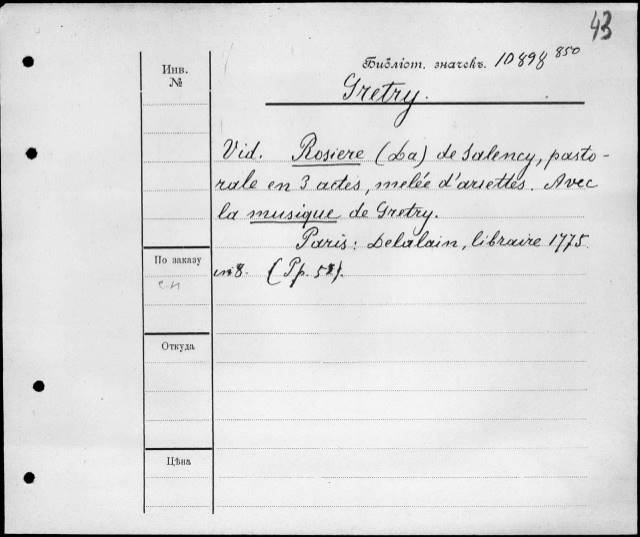 43
Инв. №
Библіот. значекъ. 10898 850
Gretry.
Vid. Rosiere (La) de Salency, pasto-
rale en 3 actes, melée d'ariettes. Avec
la musique de Gretry.
Paris: Delalain, libraire 1775.
По заказу
in 8. (Pp.
Откуда
Цѣна